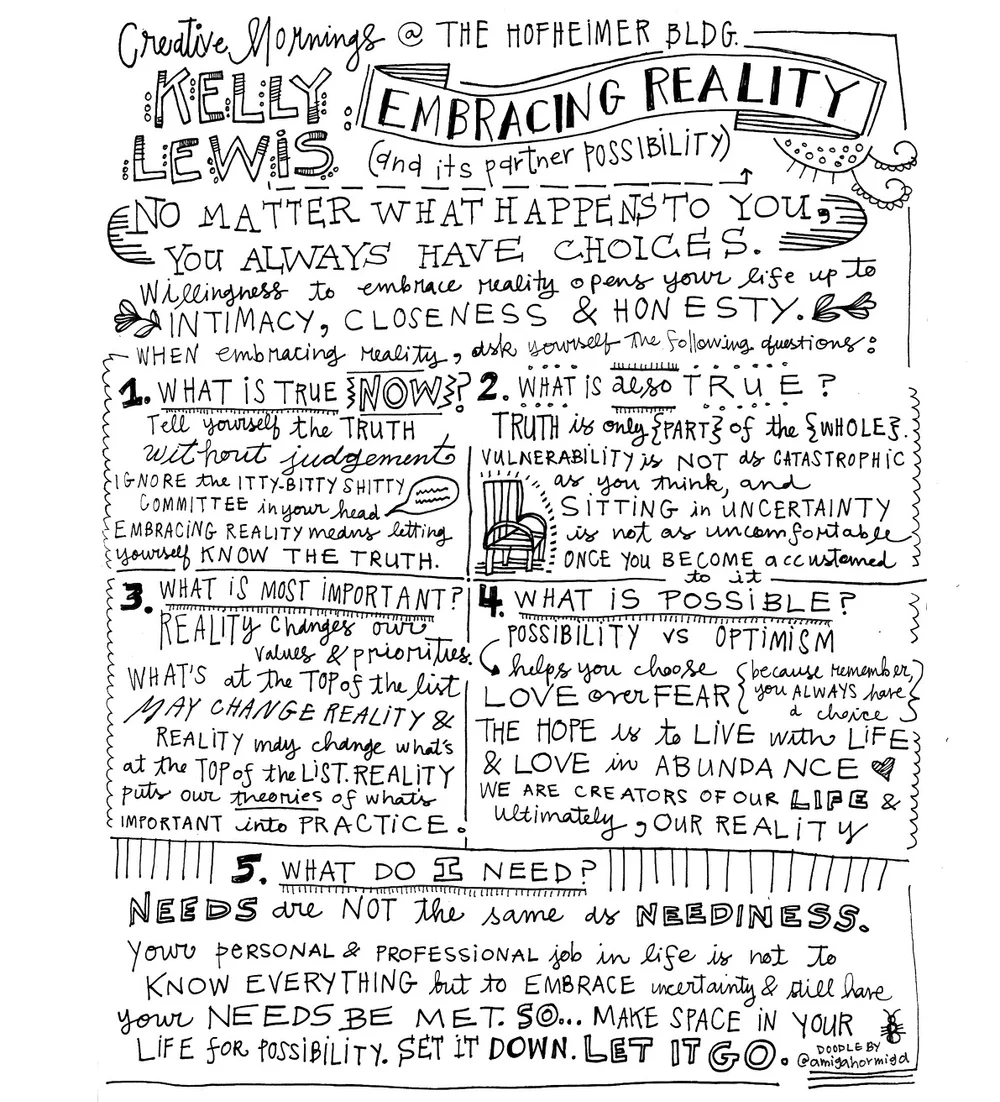 Creative Mornings @ THE HOFHEIMER BLDG.
KELLY LEWIS:
EMBRACING REALITY
(and its partner POSSIBILITY)
NO MATTER WHAT HAPPENS TO YOU,
YOU ALWAYS HAVE CHOICES.
Willingness to embrace reality opens your life up to
INTIMACY, CLOSENESS & HONESTY.
WHEN embracing reality, ask yourself the following questions:
1. WHAT IS TRUE {NOW}?
Tell yourself the TRUTH
without judgement
IGNORE the ITTY-BITTY SHITTY
COMMITTEE in your head
EMBRACING REALITY means letting
yourself KNOW THE TRUTH.
2. WHAT IS also TRUE?
TRUTH is only {PART} of the {WHOLE}.
VULNERABILITY is NOT as CATASTROPHIC
as you think, and
SITTING in UNCERTAINTY
is not as uncomfortable
ONCE YOU BECOME accustomed
to it
3. WHAT IS MOST IMPORTANT?
REALITY changes our
values & priorities.
WHAT'S at the TOP of the list
MAY CHANGE REALITY &
REALITY may change what's
at the TOP of the LIST. REALITY
puts our theories of what's
IMPORTANT into PRACTICE.
4. WHAT IS POSSIBLE?
POSSIBILITY VS OPTIMISM
helps you choose
LOVE over FEAR
{because remember,
you ALWAYS have
a choice}
THE HOPE is to LIVE with LIFE
& LOVE in ABUNDANCE
WE ARE CREATORS OF OUR LIFE &
ultimately, OUR REALITY
5. WHAT DO I NEED?
NEEDS are NOT the same as NEEDINESS.
Your PERSONAL & PROFESSIONAL job in life is not to
KNOW EVERYTHING but to EMBRACE uncertainty & still have
your NEEDS BE MET. SO... MAKE SPACE IN YOUR
LIFE FOR POSSIBILITY. SET IT DOWN. LET IT GO.
DOODLE BY
@amigahormiga